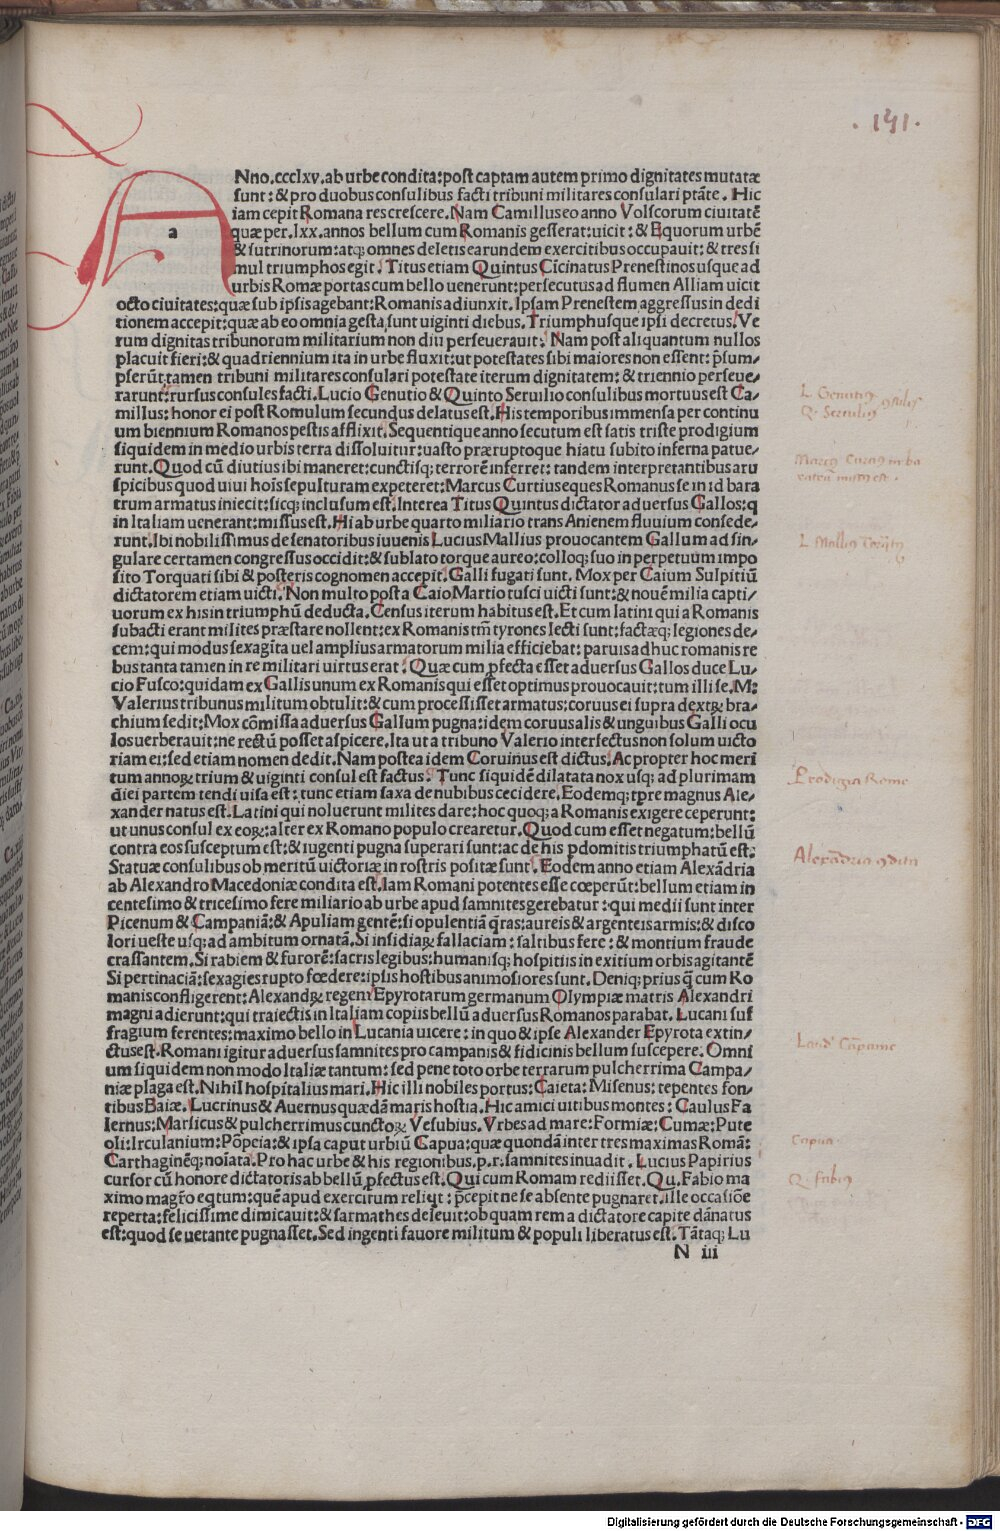 . 141 .
ANno.ccclxv.ab urbe condita:post captam autem primo dignitates mutatæ
sunt:& pro duobus consulibus facti tribuni militares consulari ptāte. Hic
iam cepit Romana res crescere. Nam Camillus eo anno Volscorum ciuitatē
a
quæ per.lxx.annos bellum cum Romanis gesserat:uicit:& Equorum urbē
& sutrinorum:atq; omnes deletis earundem exercitibus occupauit:& tres si
mul triumphos egit. Titus etiam Quintus Cīcinatus Prenestinos usque ad
urbis Romæ portas cum bello uenerunt:persecutus ad flumen Alliam uicit
octo ciuitates:quæ sub ipsis agebant:Romanis adiunxit. Ipsam Prenestem aggressus in dedi
tionem accepit:quæ ab eo omnia gesta sunt uiginti diebus. Triumphusque ipsi decretus. Ve
rum dignitas tribunorum militarium non diu perseuerauit. Nam post aliquantum nullos
placuit fieri:& quadriennium ita in urbe fluxit:ut potestates sibi maiores non essent:p̄sum-
pserūt tamen tribuni militares consulari potestate iterum dignitatem:& triennio perseue-
rarunt:rursus consules facti. Lucio Genutio & Quinto Seruilio consulibus mortuus est Ca-
millus:honor ei post Romulum secundus delatus est. His temporibus immensa per continu
um biennium Romanos pestis afflixit. Sequentique anno secutum est satis triste prodigium
siquidem in medio urbis terra dissoluitur:uasto præruptoque hiatu subito inferna patue-
runt. Quod cū diutius ibi maneret:cunctisq; terrorē inferret: tandem interpretantibus aru
spicibus quod uiui hoīs sepulturam expeteret:Marcus Curtius eques Romanus se in id bara
trum armatus iniecit:sicq; inclusum est. Interea Titus Quintus dictator aduersus Gallos:q
in Italiam uenerant:missus est. Hi ab urbe quarto miliario trans Anienem fluuium consede-
runt. Ibi nobilissimus de senatoribus iuuenis Lucius Mallius prouocantem Gallum ad sin-
gulare certamen congressus occidit:& sublato torque aureo:colloq; suo in perpetuum impo
sito Torquati sibi & posteris cognomen accepit. Galli fugati sunt. Mox per Caium Sulpitiū
dictatorem etiam uicti. Non multo post a Caio Martio tusci uicti sunt:& nouē milia capti-
uorum ex his in triumphū deducta. Census iterum habitus est. Et cum latini qui a Romanis
subacti erant milites præstare nollent:ex Romanis tm̄ tyrones lecti sunt:factæq; legiones de-
cem:qui modus sexagīta uel amplius armatorum milia efficiebat: paruis adhuc romanis re
bus tanta tamen in re militari uirtus erat. Quæ cum ꝓfecta esset aduersus Gallos duce Lu-
cio Fusco:quidam ex Gallis unum ex Romanis qui esset optimus prouocauit:tum illi se. M:
Valerius tribunus militum obtulit:& cum processisset armatus:coruus ei supra dextꝝ bra-
chium sedit:Mox cōmissa aduersus Gallum pugna:idem coruus alis & unguibus Galli ocu
los uerberauit:ne rectū posset aspicere. Ita ut a tribuno Valerio interfectus non solum uicto
riam ei:sed etiam nomen dedit. Nam postea idem Coruinus est dictus. Ac propter hoc meri
tum annoꝝ trium & uiginti consul est factus. Tunc siquidē dilatata nox usq; ad plurimam
diei partem tendi uisa est:tunc etiam saxa de nubibus cecidere. Eodemq; tpre magnus Ale-
xander natus est. Latini qui noluerunt milites dare:hoc quoq; a Romanis exigere ceperunt:
ut unus consul ex eoꝝ:alter ex Romano populo crearetur. Quod cum esset negatum:bellū
contra eos susceptum est:& iugenti pugna superari sunt:ac de his ꝑdomitis triumphatū est:
Statuæ consulibus ob meritū uictoriæ in rostris positæ sunt. Eodem anno etiam Alexādria
ab Alexandro Macedoniæ condita est. Iam Romani potentes esse cœperūt:bellum etiam in
centesimo & tricesimo fere miliario ab urbe apud samnites gerebatur:qui medii sunt inter
Picenum & Campaniā:& Apuliam gentē:si opulentiā q̄ras:aureis & argenteis armis:& disco
lori ueste usq; ad ambitum ornatā. Si insidiaꝝ fallaciam:saltibus fere:& montium fraude
crassantem. Si rabiem & furorē:sacris legibus:humanisq; hospitiis in exitium orbis agitantē
Si pertinaciā:sexagies rupto fœdere:ipsis hostibus animosiores sunt. Deniq; prius q̄ cum Ro
manis confligerent:Alexandꝝ regem Epyrotarum germanum Olympiæ matris Alexandri
magni adierunt:qui traiectis in Italiam copiis bellū aduersus Romanos parabat. Lucani suf
fragium ferentes:maximo bello in Lucania uicere:in quo & ipse Alexander Epyrota extin-
ctus est. Romani igitur aduersus samnites pro campanis & sidicinis bellum suscepere. Omni
um siquidem non modo Italiæ tantum: sed pene toto orbe terrarum pulcherrima Campa-
niæ plaga est. Nihil hospitalius mari. Hic illi nobiles portus:Caieta:Misenus:tepentes fon-
tibus Baiæ. Lucrinus & Auernus quædā maris hostia. Hic amici uitibus montes:Caulus Fa
lernus:Marsicus & pulcherrimus cunctoꝝ Vesubius. Vrbes ad mare:Formiæ:Cumæ:Pute
oli:Irculanium:Pōpeia:& ipsa caput urbiū Capua:quæ quondā inter tres maximas Romā:
Carthaginēq; noīata. Pro hac urbe & his regionibus.p.r.samnites inuadit. Lucius Papirius
cursor cū honore dictatoris ab bellū ꝓfectus est. Qui cum Romam rediisset. Qu. Fabio ma
ximo magr̄o eqtum:quē apud exercitum reliqt:p̄cepit ne se absente pugnaret. ille occasiōe
reperta:felicissime dimicauit:& sarmathes deleuit:ob quam rem a dictatore capite dānatus
est:quod se uetante pugnasset. Sed ingenti fauore militum & populi liberatus est. Tātaq; Lu
N iii
L. Genutiꝰ
Q. Seruiliꝰ
Marcꝰ Curtiꝰ in ba
ratrū
L. Malliꝰ
Prodigia Rome
Alexādria
Campanie
Capua
Q. fabiꝰ
Digitalisierung gefördert durch die Deutsche Forschungsgemeinschaft - DFG